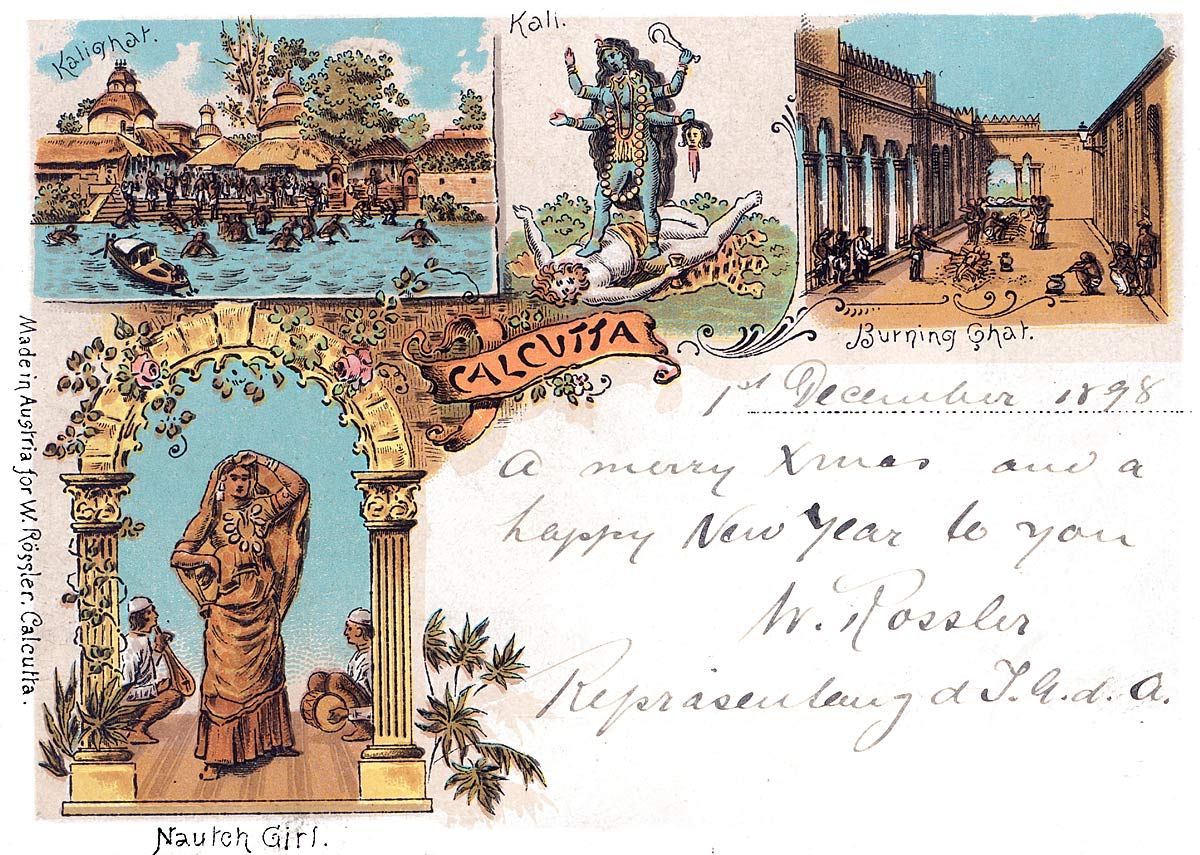 Kalighat.
Kali.
Burning Ghat.
CALCUTTA
1st December 1898
A merry Xmas and a
happy New Year to you
W. Rossler
Repräsentang d I.G.d.A.
Nautch Girl.
Made in Austria for W. Rössler. Calcutta.